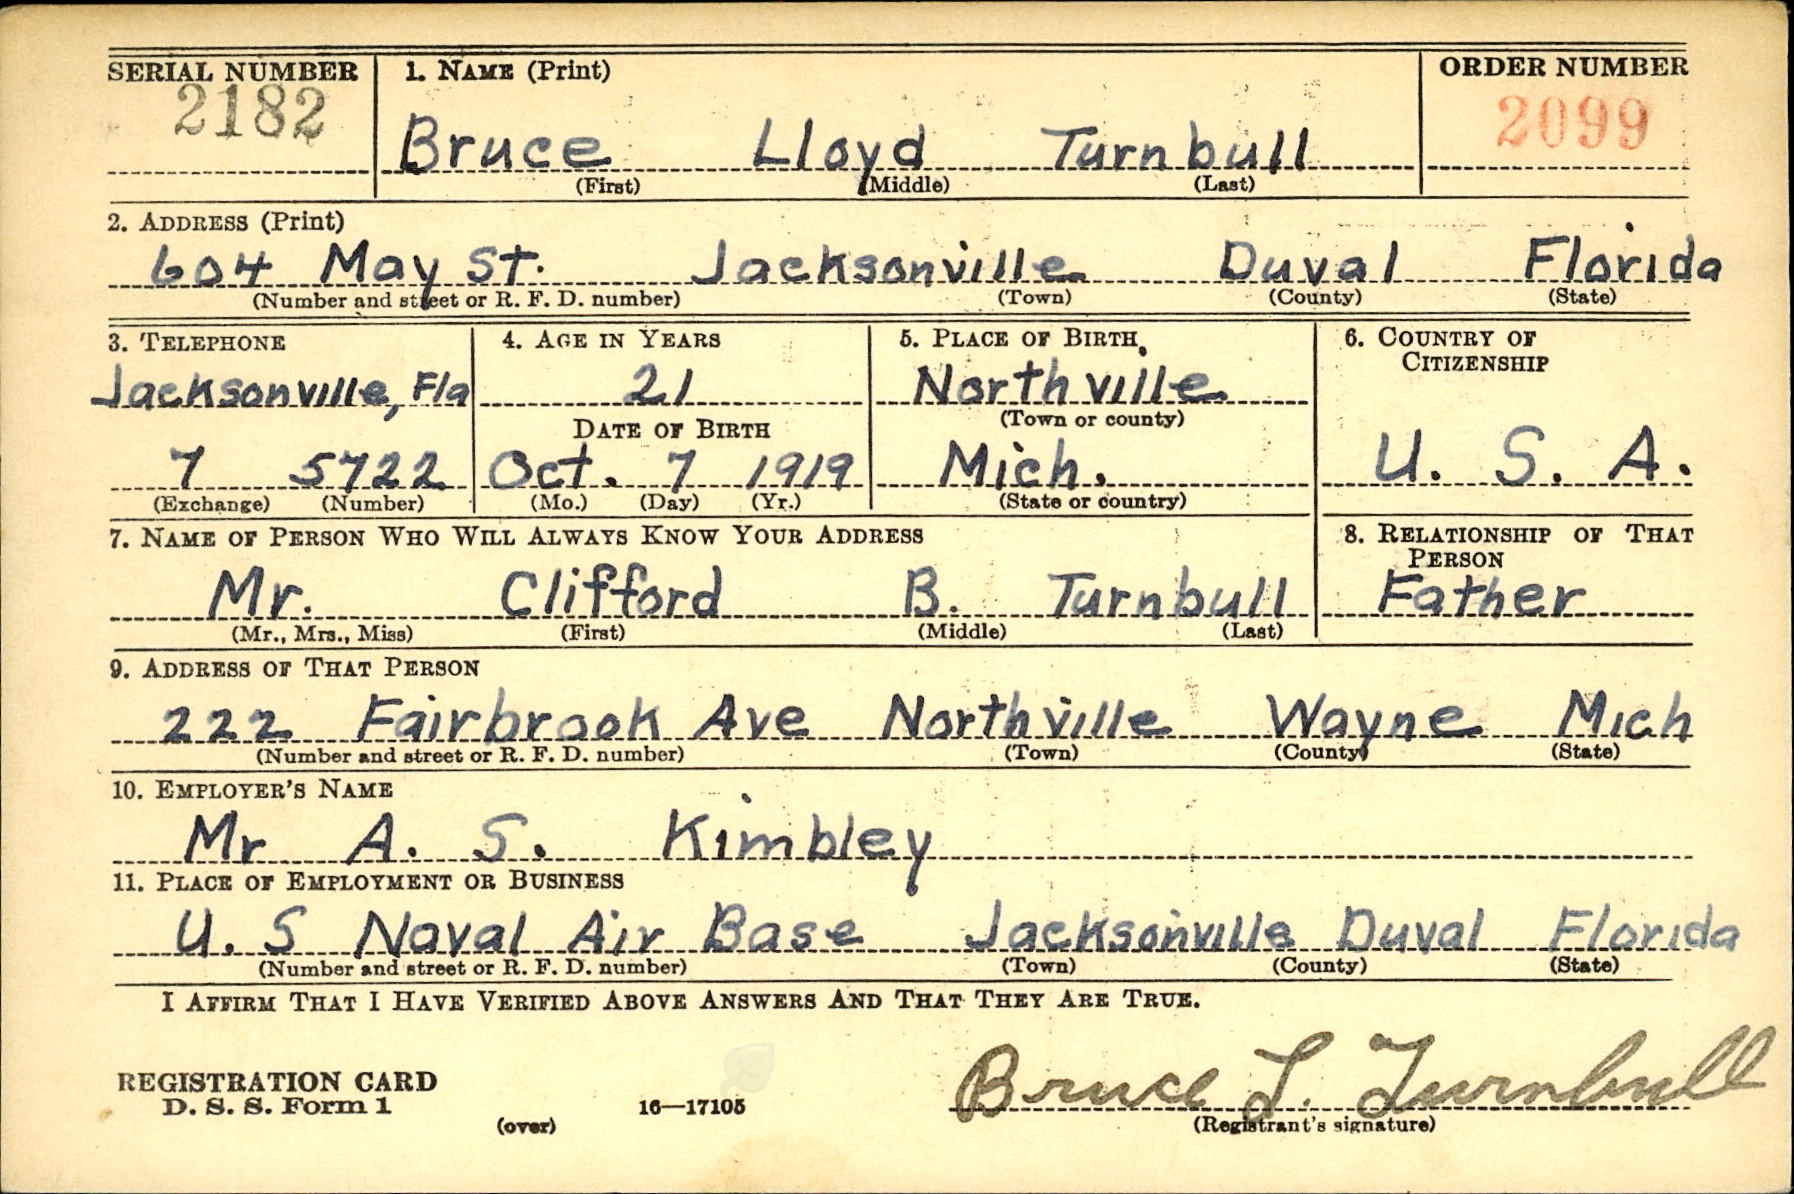 SERIAL NUMBER 1. NAME (Print) ORDER NUMBER
2182 Bruce Lloyd Turnbull 2099
(First) (Middle) (Last)
2. ADDRESS (Print)
604 May St. Jacksonville Duval Florida
(Number and street or R. F. D. number) (Town) (County) (State)
3. TELEPHONE 4. AGE IN YEARS 5. PLACE OF BIRTH 6. COUNTRY OF
CITIZENSHIP
Jacksonville, Fla 21 Northville
DATE OF BIRTH (Town or county)
7 5722 Oct. 7 1919 Mich. U. S. A.
(Exchange) (Number) (Mo.) (Day) (Yr.) (State or country)
7. NAME OF PERSON WHO WILL ALWAYS KNOW YOUR ADDRESS 8. RELATIONSHIP OF THAT
PERSON
Mr. Clifford B. Turnbull Father
(Mr., Mrs., Miss) (First) (Middle) (Last)
9. ADDRESS OF THAT PERSON
222 Fairbrook Ave Northville Wayne Mich
(Number and street or R. F. D. number) (Town) (County) (State)
10. EMPLOYER'S NAME
Mr A. S. Kimbley
11. PLACE OF EMPLOYMENT OR BUSINESS
U. S Naval Air Base Jacksonville Duval Florida
(Number and street or R. F. D. number) (Town) (County) (State)
I AFFIRM THAT I HAVE VERIFIED ABOVE ANSWERS AND THAT THEY ARE TRUE.
REGISTRATION CARD Bruce L. Turnbull
D. S. S. Form 1 16—17105
(over) (Registrant's signature)